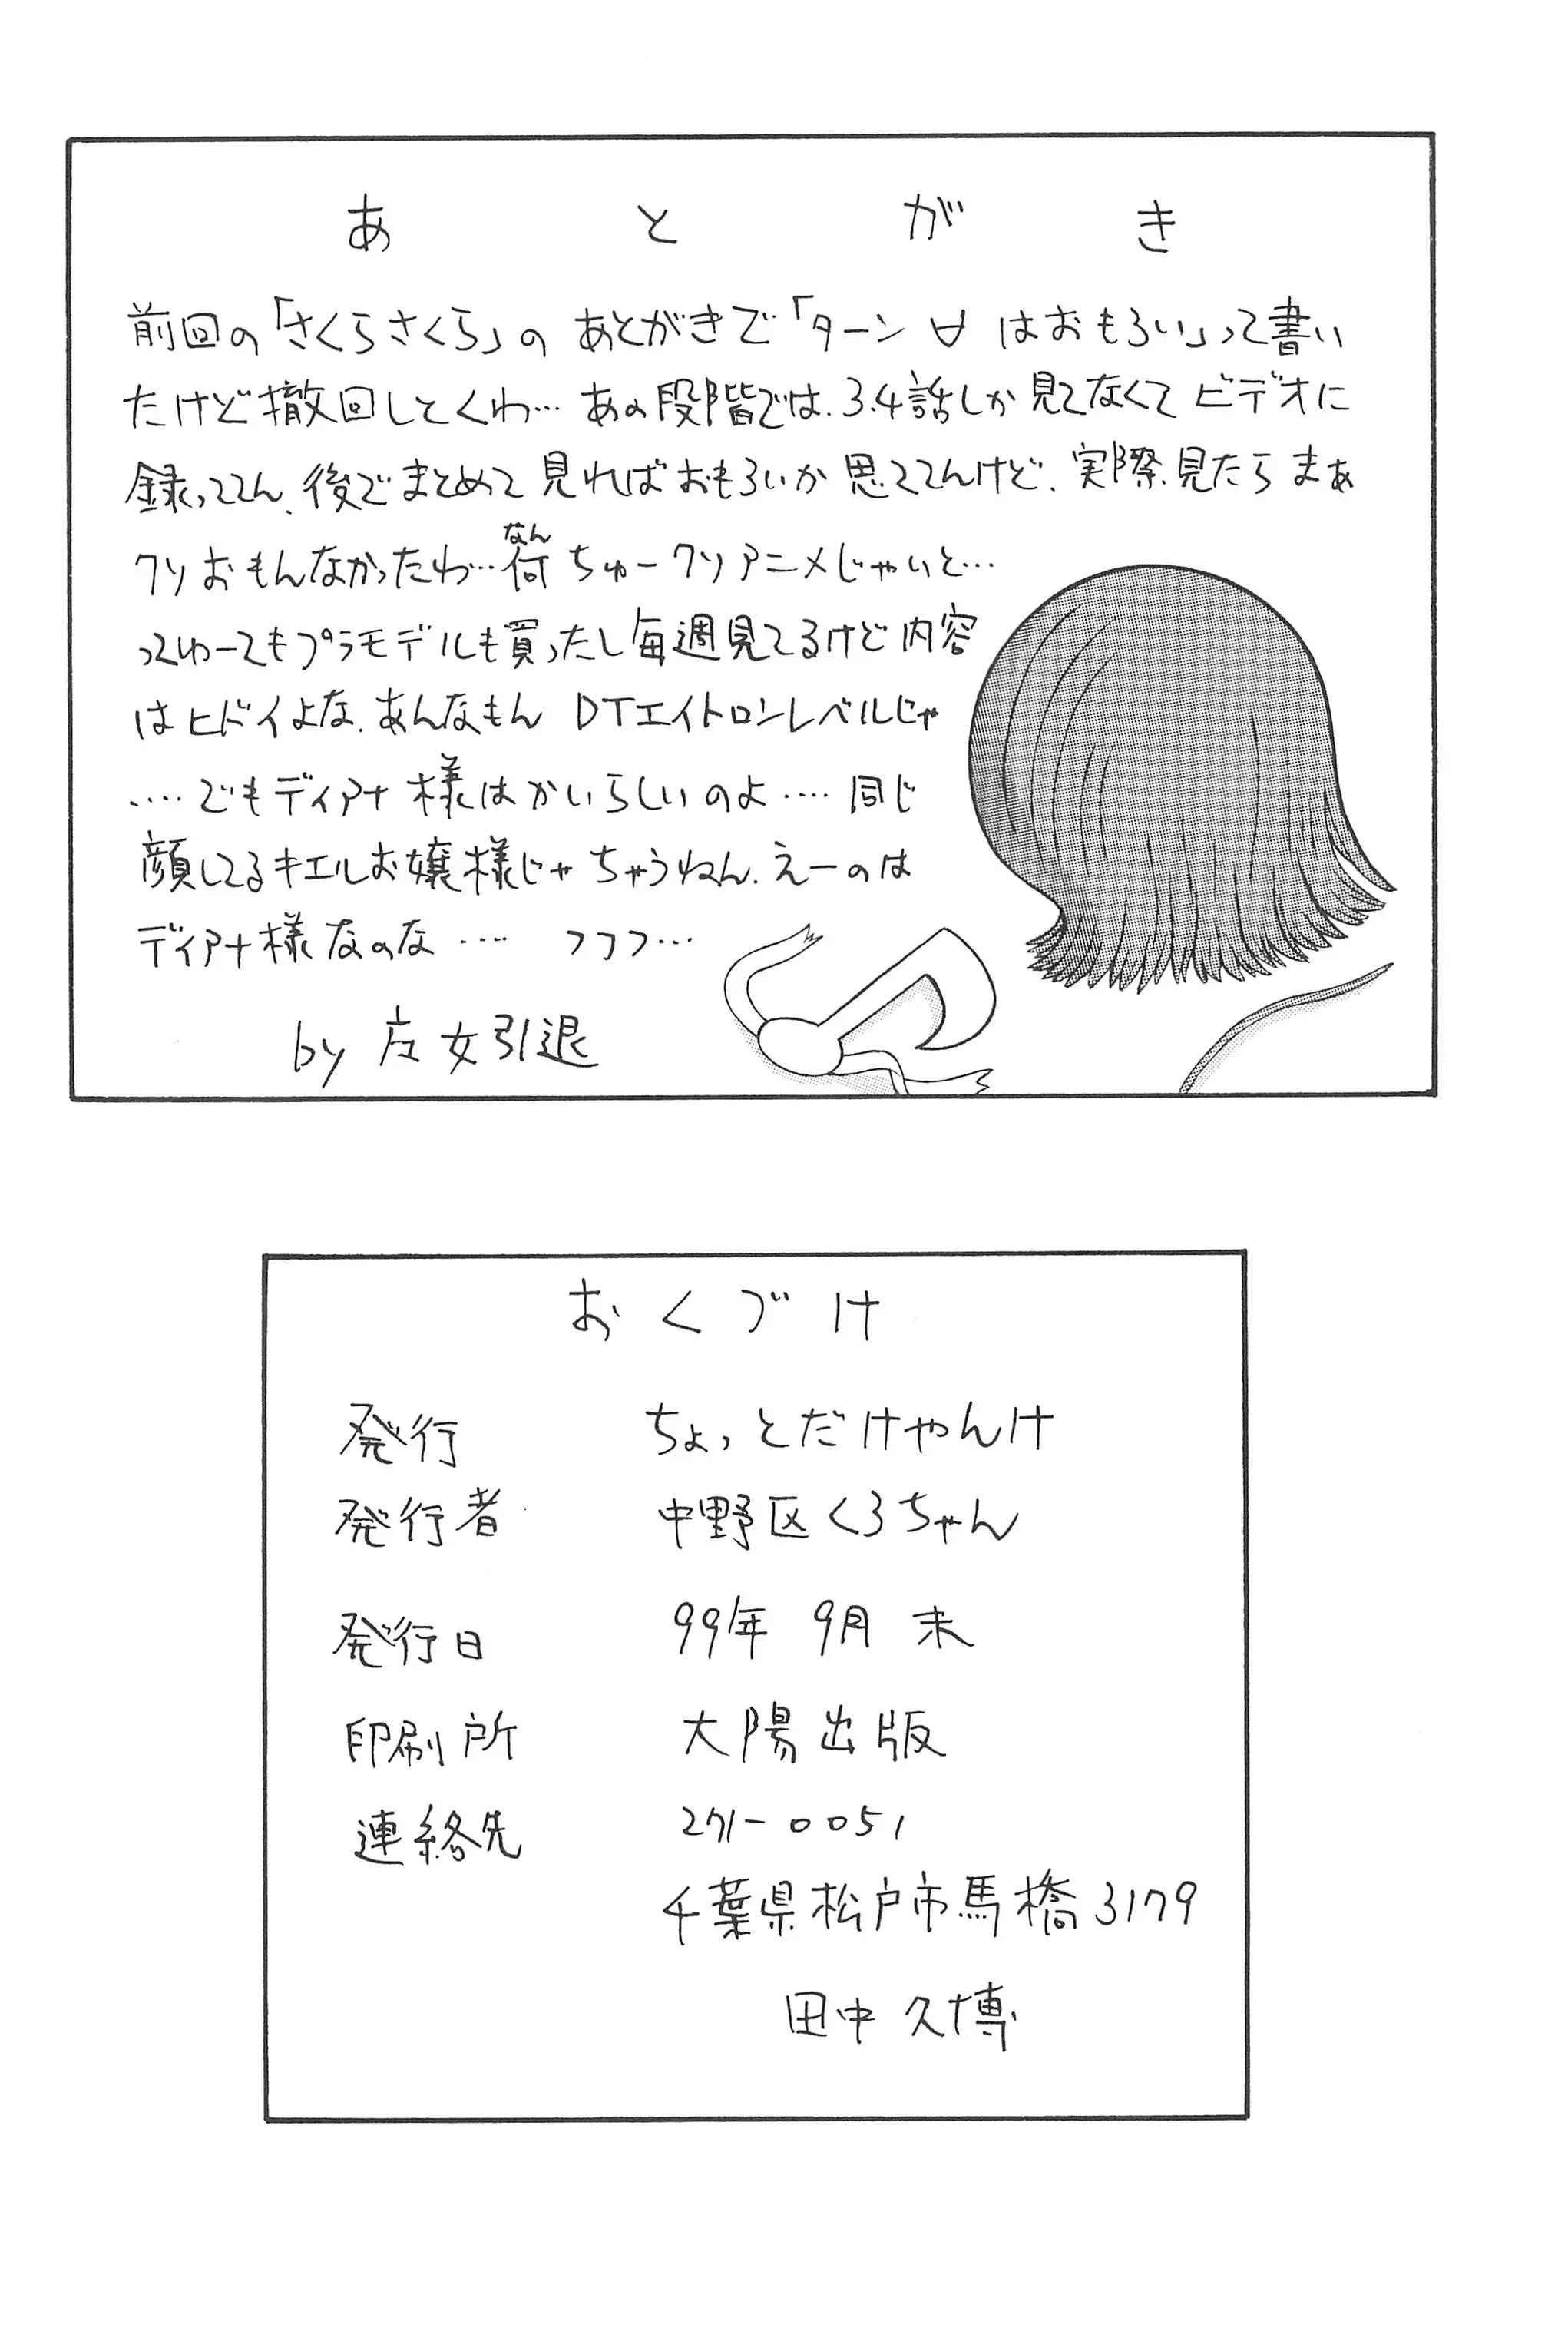 あとがき
前回の「さくらさくら」の あとがきで「ターン∀ はおもろい」って書い
たけど撤回しとくわ… あの段階では、3.4話しか見てなくてビデオに
録っててん、後でまとめて見ればおもろいか思ててんけど、実際見たらまぁ
クソおもんなかったわ…何ちゅークソアニメじゃいと…
なん
ってゆーてもプラモデルも買ったし毎週見てるけど内容
はヒドイよな、あんなもん DTエイトロンレベルじゃ
‥‥でもディアナ様はかいらしいのよ‥‥同じ
顔してるキエルお嬢様じゃちゃうねん、えーのは
ディアナ様なのな‥‥ フフフ…
by 女引退
おくづけ
発行 ちょっとだけやんけ
発行者 中野区くろちゃん
発行日 99年 9月 末
印刷所 大陽出版
連絡先 271-0051
千葉県松戸市馬橋3179
田中久博